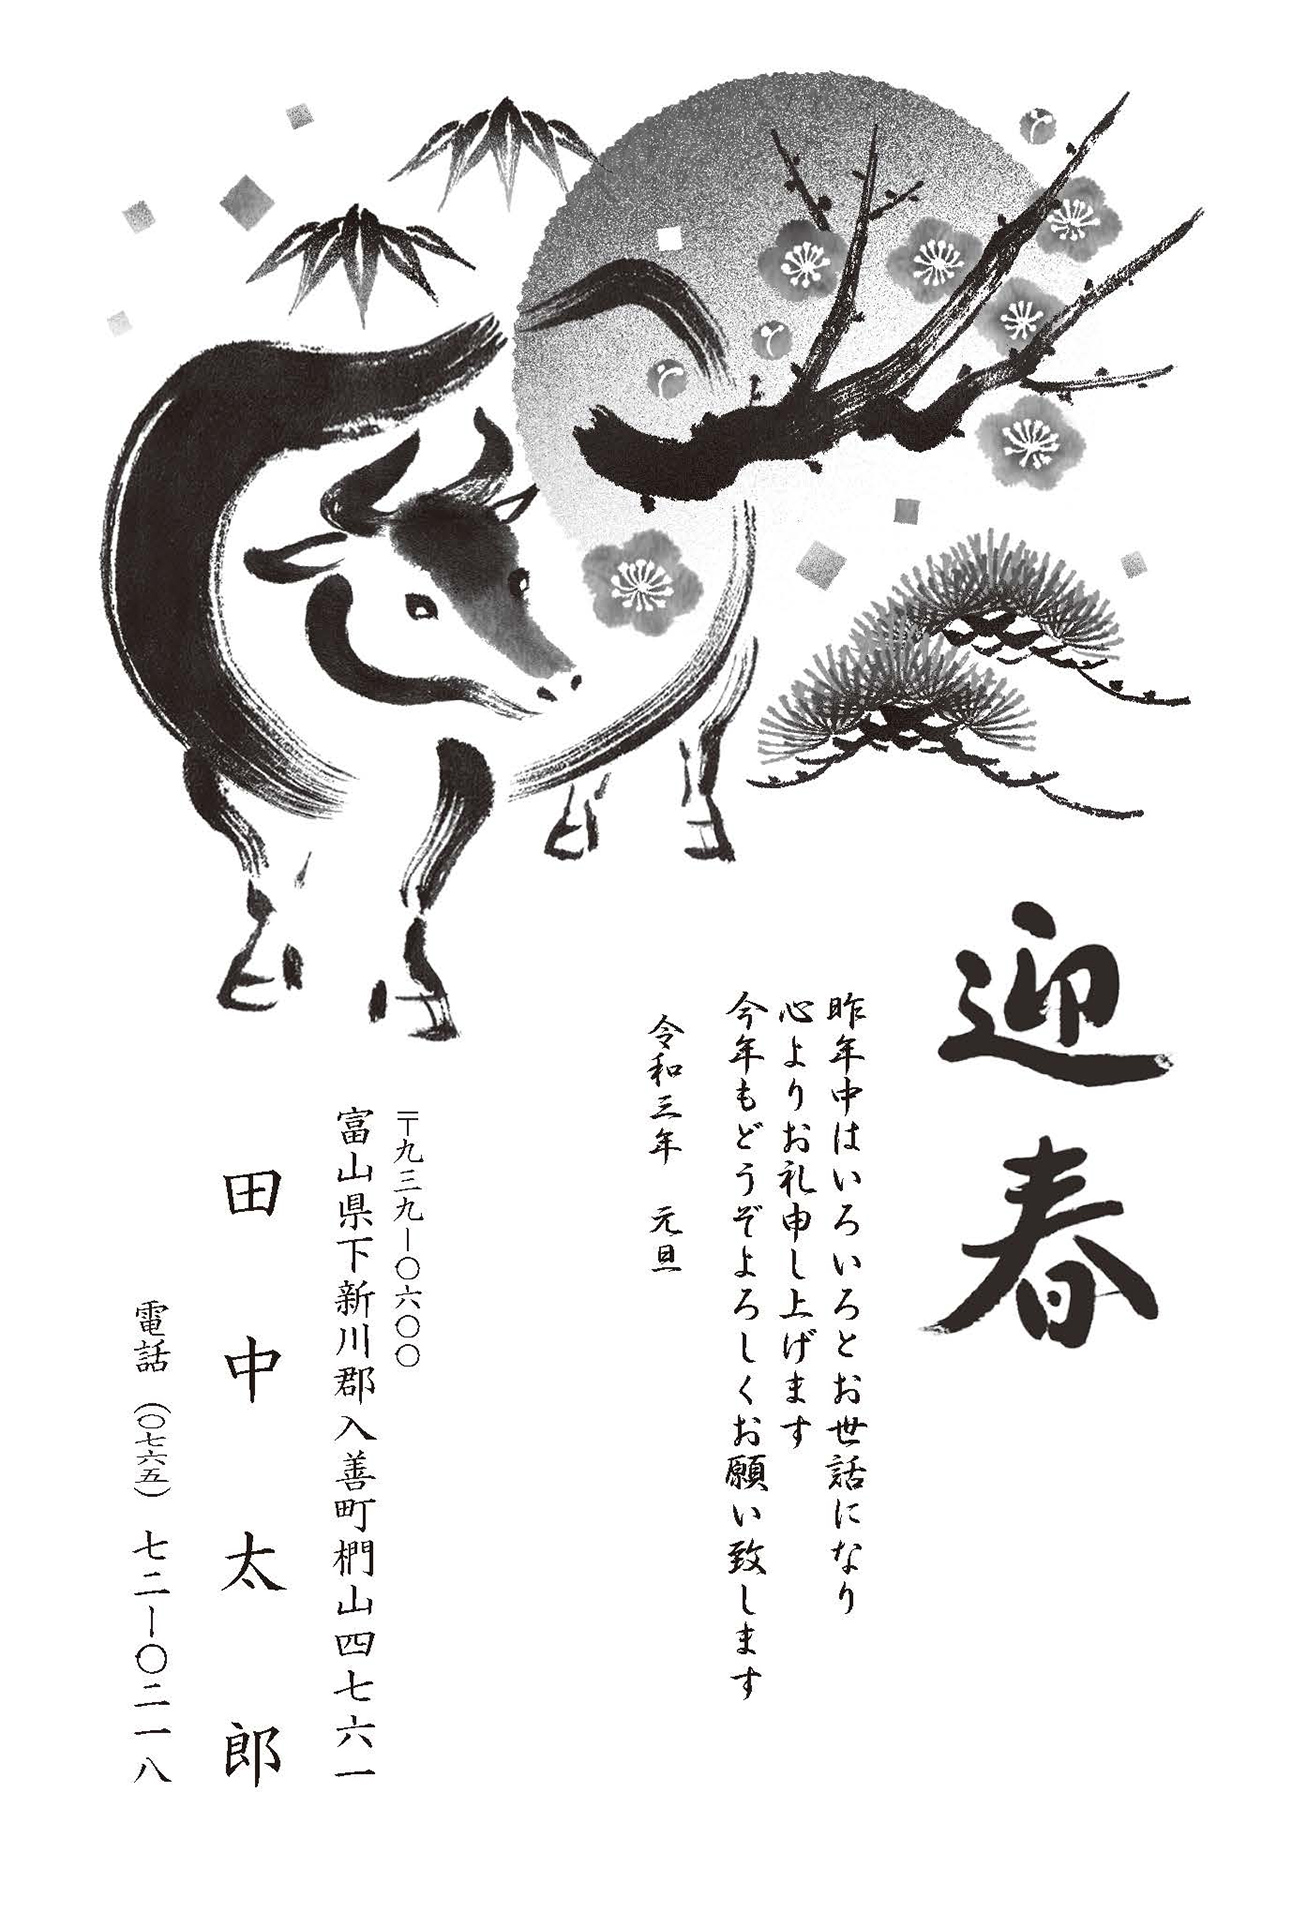 迎春
昨年中はいろいろとお世話になり
心よりお礼申し上げます
今年もどうぞよろしくお願い致します
令和三年　元旦
〒九三九―〇六〇〇
富山県下新川郡入善町椚山四七六一
田中太郎
電話（〇七六五）七二―〇二一八